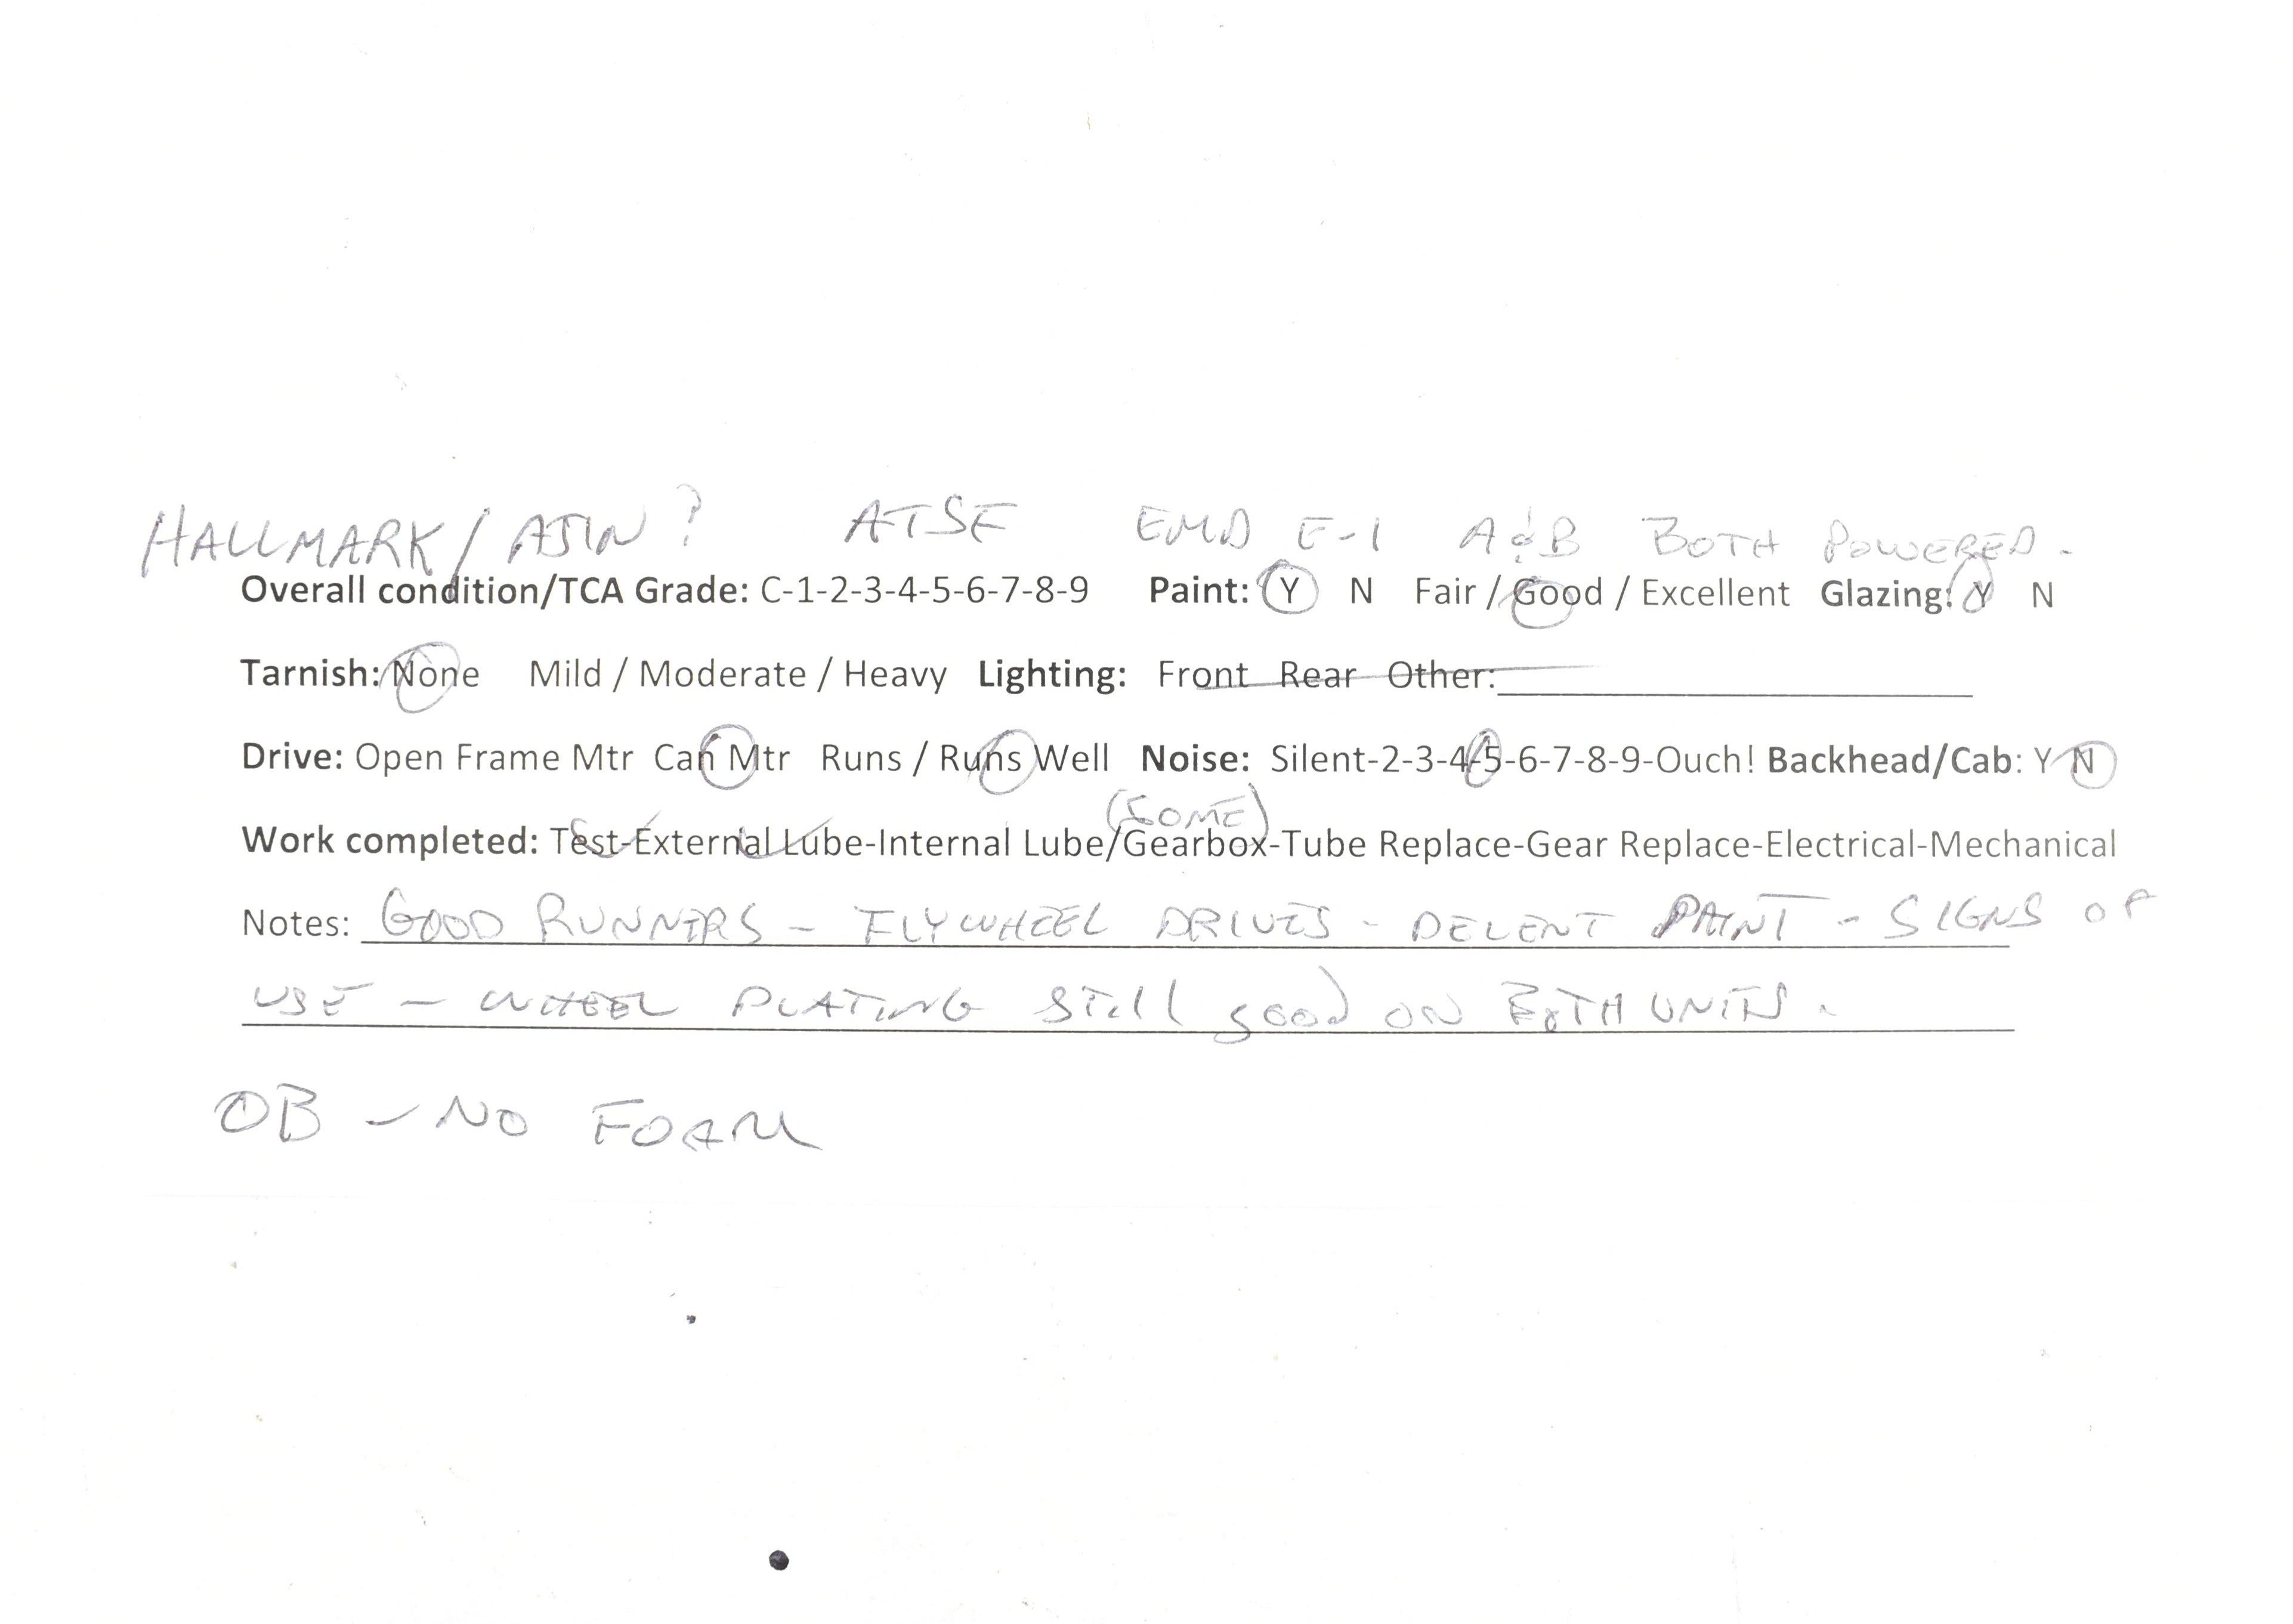 HALLMARK/ AJIN? ATSF EMD E-1 A&B BOTH POWERED.
Overall condition/TCA Grade: C-1-2-3-4-5-6-7-8-9 Paint: Y N Fair / Good / Excellent Glazing: Y N
Tarnish: None Mild / Moderate / Heavy Lighting: Front Rear Other:
Drive: Open Frame Mtr Can Mtr Runs / Runs Well Noise: Silent-2-3-4-5-6-7-8-9-Ouch! Backhead/Cab: Y N
(SOME)
Work completed: Test-External Lube-Internal Lube/Gearbox-Tube Replace-Gear Replace-Electrical-Mechanical
Notes: GOOD RUNNERS - FLYWHEEL DRIVES - DECENT PAINT - SIGNS OF
USE - WHEEL PLATING Still good ON BOTH UNITS.
OB - NO FOAM